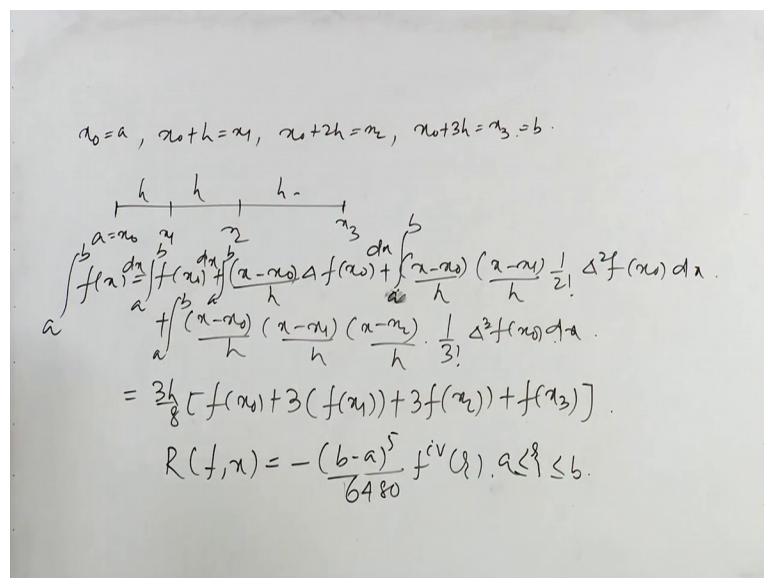 x₀ = a , x₀ + h = x₁, x₀ + 2h = x₂, x₀ + 3h = x₃ = b .
h h h -
a = x₀ x₁ x₂ x₃
∫ₐᵇ f(x) dx = ∫ₐᵇ f(x₀) dx + ∫ₐᵇ (x-x₀)/h Δ f(x₀) dx + ∫ₐᵇ (x-x₀)/h (x-x₁)/h 1/2! Δ²f(x₀) dx .
+ ∫ₐᵇ (x-x₀)/h (x-x₁)/h (x-x₂)/h . 1/3! Δ³f(x₀) dx .
= 3h/8 [ f(x₀) + 3(f(x₁)) + 3f(x₂)) + f(x₃) ] .
R(f,x) = - (b-a)⁵/6480 f^{iv}(ξ) . a ≤ ξ ≤ b.